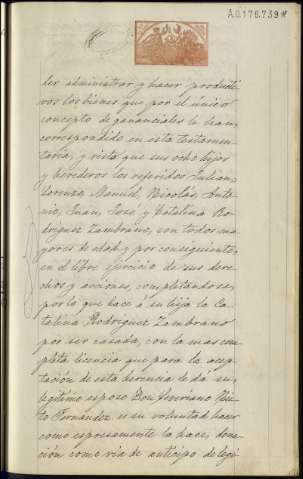 A0,176,739*
der administrar y hacer producti
vos los bienes que por el único
concepto de gananciales le han
correspondido en esta testamen
taría, y visto que sus ocho hijos
y herederos los referidos Julian,
Lorenzo, Manuel, Nicolás, Anto
nio, Juan, José y Catalina Ro
driguez Zambrano, son todos ma
yores de edad y por consiguiente,
en el libre ejercicio de sus dere
chos y acciones, completandose,
por lo que hace á su hija la Ca
talina Rodriguez Zambrano
por ser casada, con la mas com
pleta licencia que para la acep
tación de esta herencia le dá su
legítimo esposo Don
Fernandez es su voluntad hacer
como espresamente la hace, dona
ción como via de anticipo de legí